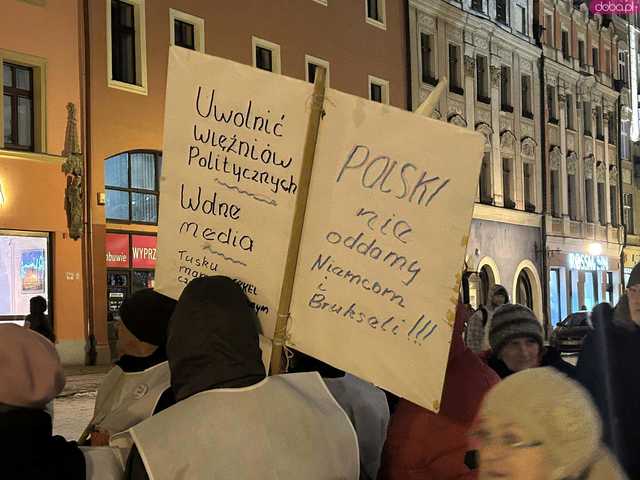 doba.pl
Uwolnić
więźniów
Politycznych
Wolne
media
Tusku
POLSKI
nie
oddamy
Niemcom
i
Brukseli !!!
WYPRZ
ROSSM